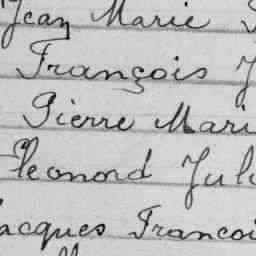 Jean Marie
François
Pierre Mari
Eleonord Jul
Jacques Francoi